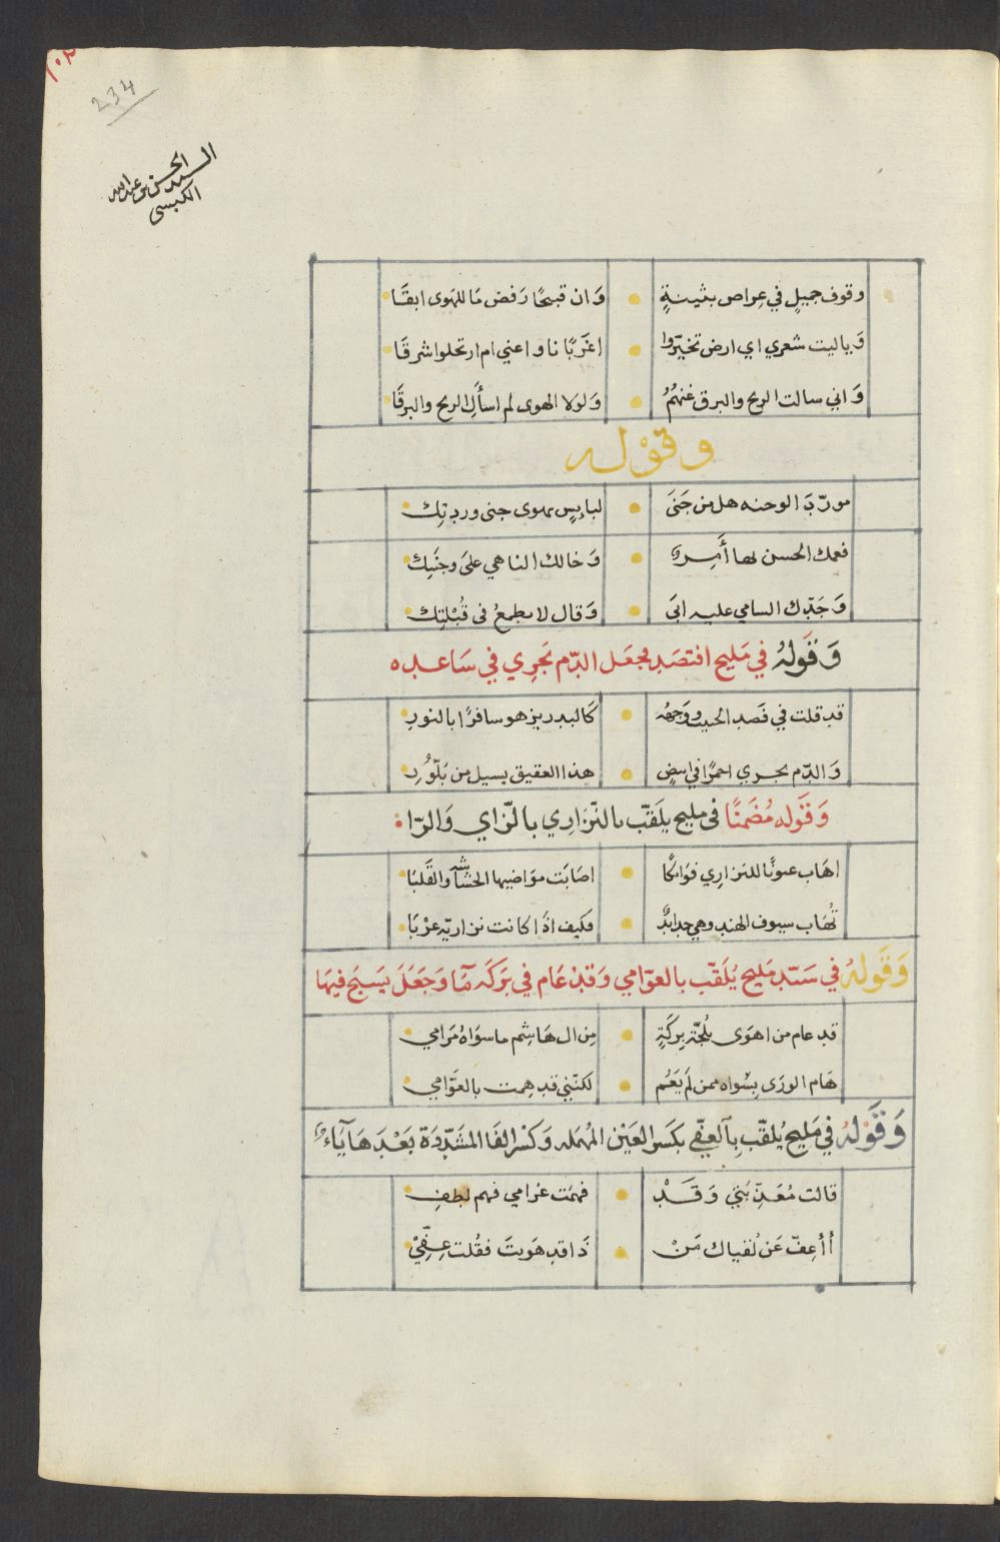 ١٠٣
234
السيد الحسن بن عبد الله
الكبسي
وقوف جميلٍ في عِراص بثينةٍ وَان قبيحًا رَفض مَا للهَوى ابقَا
وَياليت شعري اي ارض تخيّروا اغَربًا ناو اعني ام ارتحلوا شرقَا
وَاني سالت الريح والبرق عنهمُ وَلولا الهوى لم اسأَلِ الريح والبرقَا
وقوْله
مورّدَ الوجنه هل من جَنَى لبايسٍ يهوى جنى وردتِك
فعمك الحسن لها أَمِرٌ وَخالك الناهي على وجنَتِك
وَجَدّك السامي عليه ابَى وَقال لا يطمعُ في قُبْلتِك
وَقَولهُ في مَليح افتصَد فجعَل الدّم يَجرِي في سَاعده
قد قلت في فَصد الحبيب ووَجهه كَالبدر يزهو سافرًا بالنورِ
وَالدّم يجري احمرًا في ابيضٍ هذا العقيق يسيل من بَلّورِ
وَقَوله مُضَمنًا في مليح يلَقّب بالنّزَارِي بالزّاي وَالرّا
اهَاب عيونًا للنزاري فواتكًا اصَابَت موَاضيها الحشَاشَة والقَلبَا
تُهَاب سيوف الهند وهي حدايدٌ فكيف اذَا كانت نزاريّه عرْبَا
وَقَولهُ في سَيّد مَليح يُلَقّب بالعوّامي وَقدْ عَام في بَركَه مآ وَجَعَلَ يَسبَح فيهَا
قد عام من اهوَى بلُجّة بِركَةٍ مِن ال هَاشِم ما سوَاهُ مَرامي
هَام الورَى بسِواه ممن لَم يَعُم لكنّني قد هِمت بالعَوّامي
وَقَوْلهُ في مَليح يُلقّب بِالعِفّي بكَسر العَين المُهمَله وَكسْر الفَا المشَدّدَة بَعْدَهَا يَاء
قالت مُعَذّبَتي وَقَدْ فهمَت غرامي فهم لطفِ
أأعِفّ عَن لُقياك مَنْ ذَا قد هَويتَ فقُلت عِفّيْ